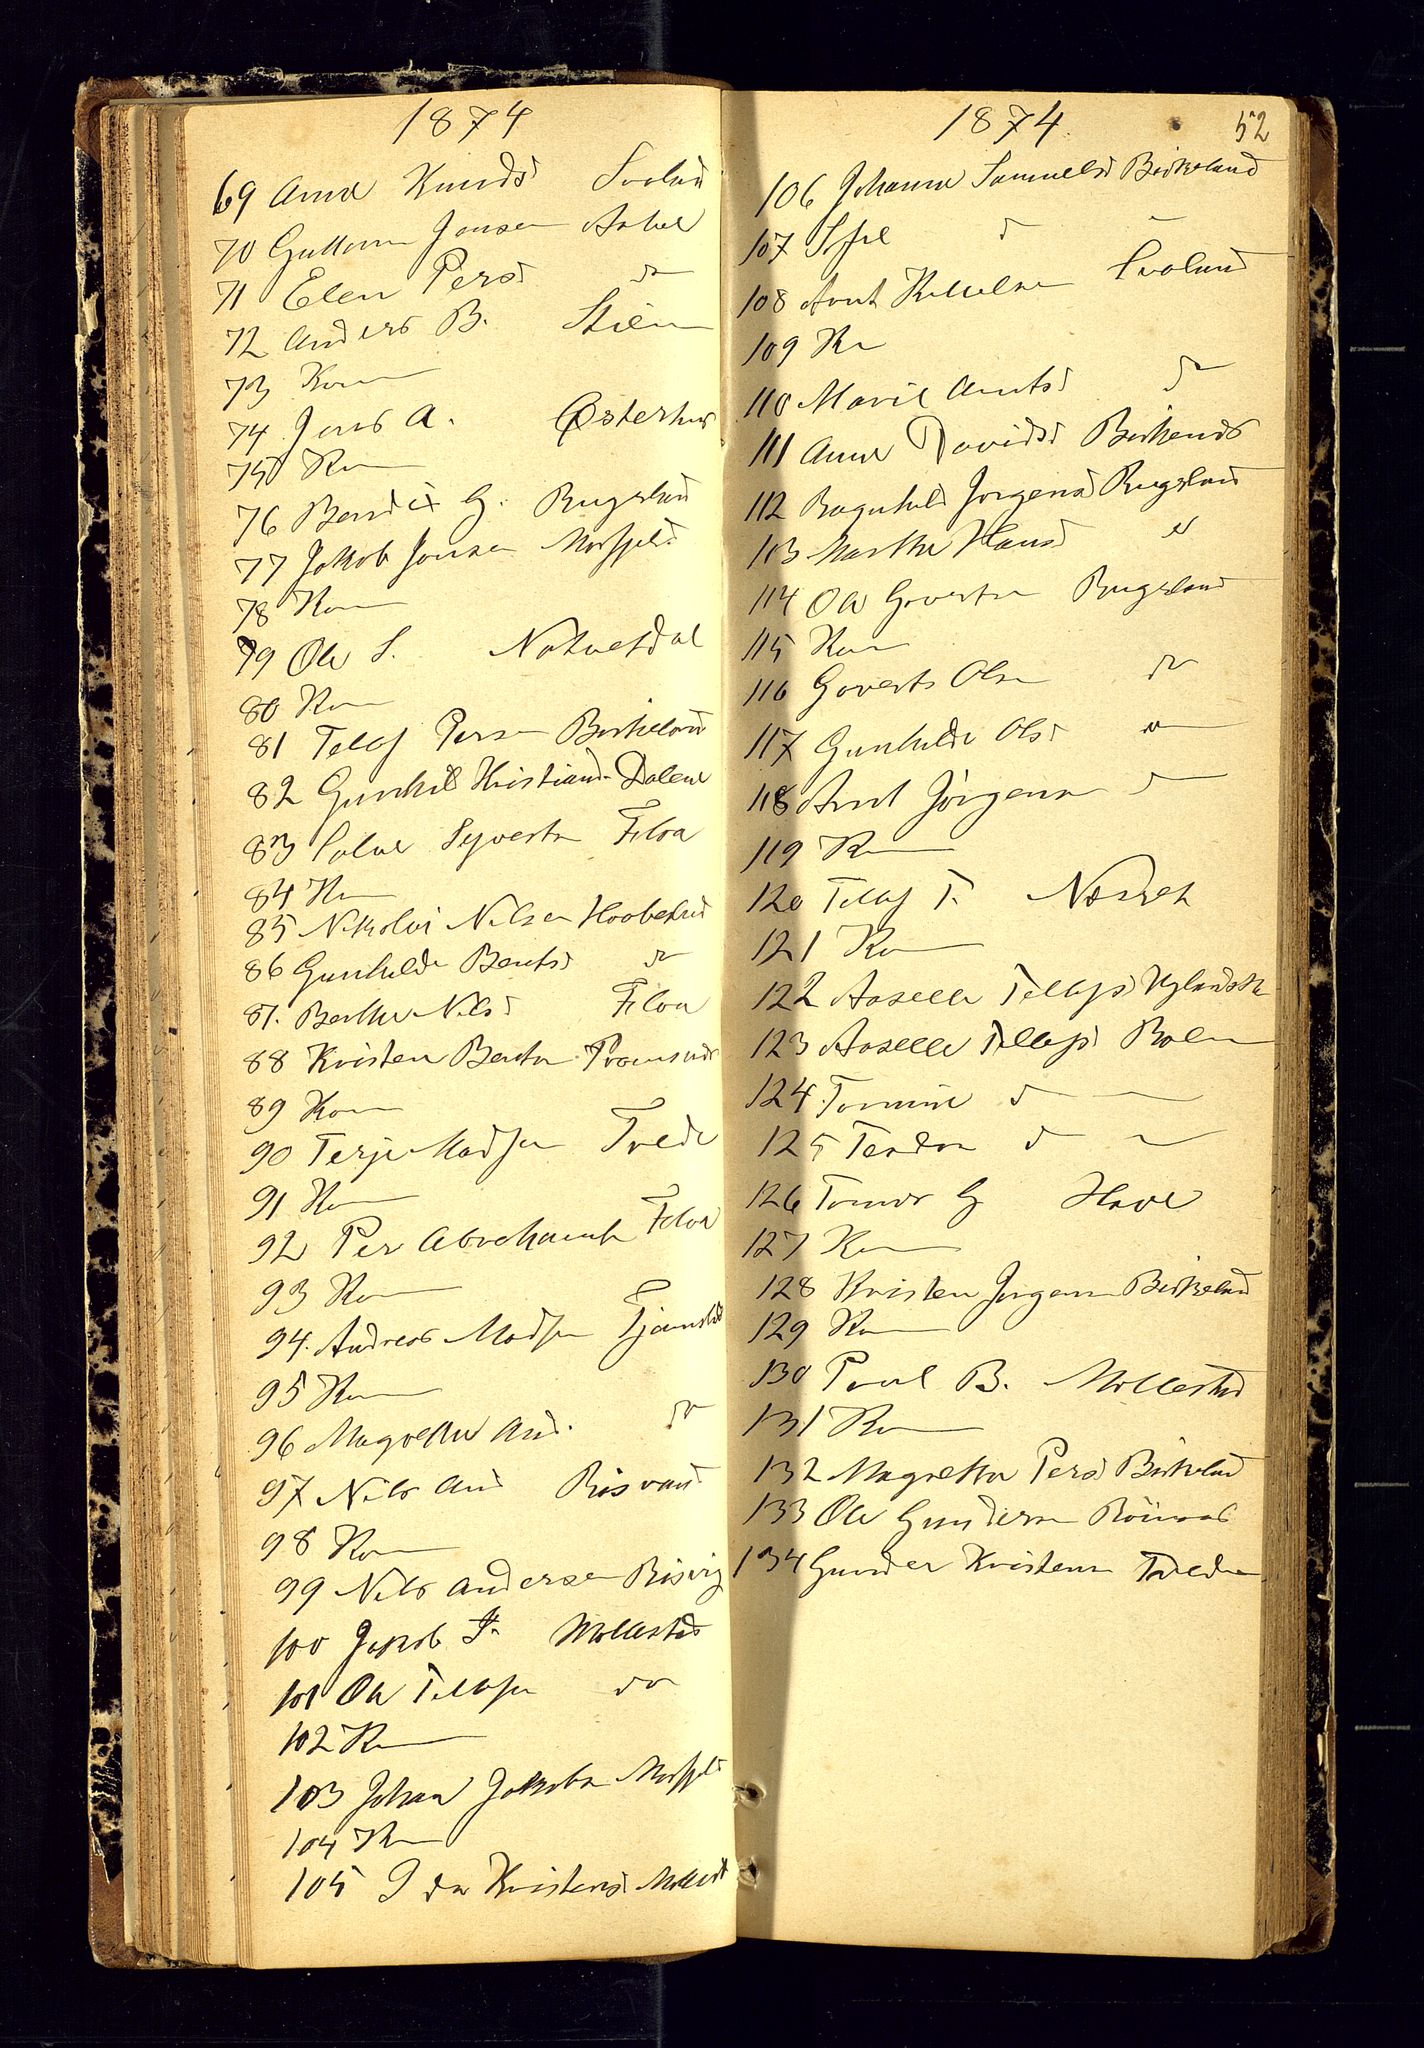 1874
69 Anne Knuds Svoland
70 Guttorm Jensen Aabel
71 Elen Persd do
72 Anders B. Stien
73 Kone
74 Jens A. Østerhus
75 Kone
76 Bendix G. Rugsland
77 Jakob Jensen Mosfjeld
78 Kone
79 Ole S. Notvetdal
80 Kone
81 Tellef Persen Birkeland
82 Gunhild Kristiansd Dalene
83 Salve Syverts Floa
84 Kone
85 Nikolai Nilsen
86 Gunhilde Bentsd do
87. Berthe Nilsd Floa
88 Kristen Bentsen
89 Kone
90 Terje Madsen Tvede
91 Kone
92 Per Abrahams Floa
93 Kone
94. Andreas Madsen
95 Kone
96 Magrethe And. do
97 Nils And
98 Kone
99 Nils Andersen Risvig
100 Jakob T. Mollestad
101 Ole Tellefsen do
102 Kone
103 Johan Jakobsen Mosfjeld
104 Kone
105 Ida Kristensd Mollestad
1874. 52
106 Johanne Samuelsd Birkeland
107 d
108 Arnt Kittelsen Svoland
109 Kone
110 Marie Arntsd do
111 Anne Davidsd Birkenes
112 Ragnhild Jørgensd Rugsland
113 Marthe Hansd
114 Ole Govertsen Rugsland
115 Kone
116 Goverts Olsen do
117 Gunhilde Olsd do
118 Arnt Jørgensen do
119 Kone
120 Tellef T. Næset
121 Kone
122 Aaselle Tellefsd
123 Aaselle Tellefsd
124 Tomine d
125 Teodor d
126 Tomas G Have
127 Kone
128 Kristen Jørgensen Birkeland
129 Kone
130 Poul B. Mollestad
131 Kone
132 Magrette Persd Birkeland
133 Ole Gundersen
134 Gunder Kristensen Tvede